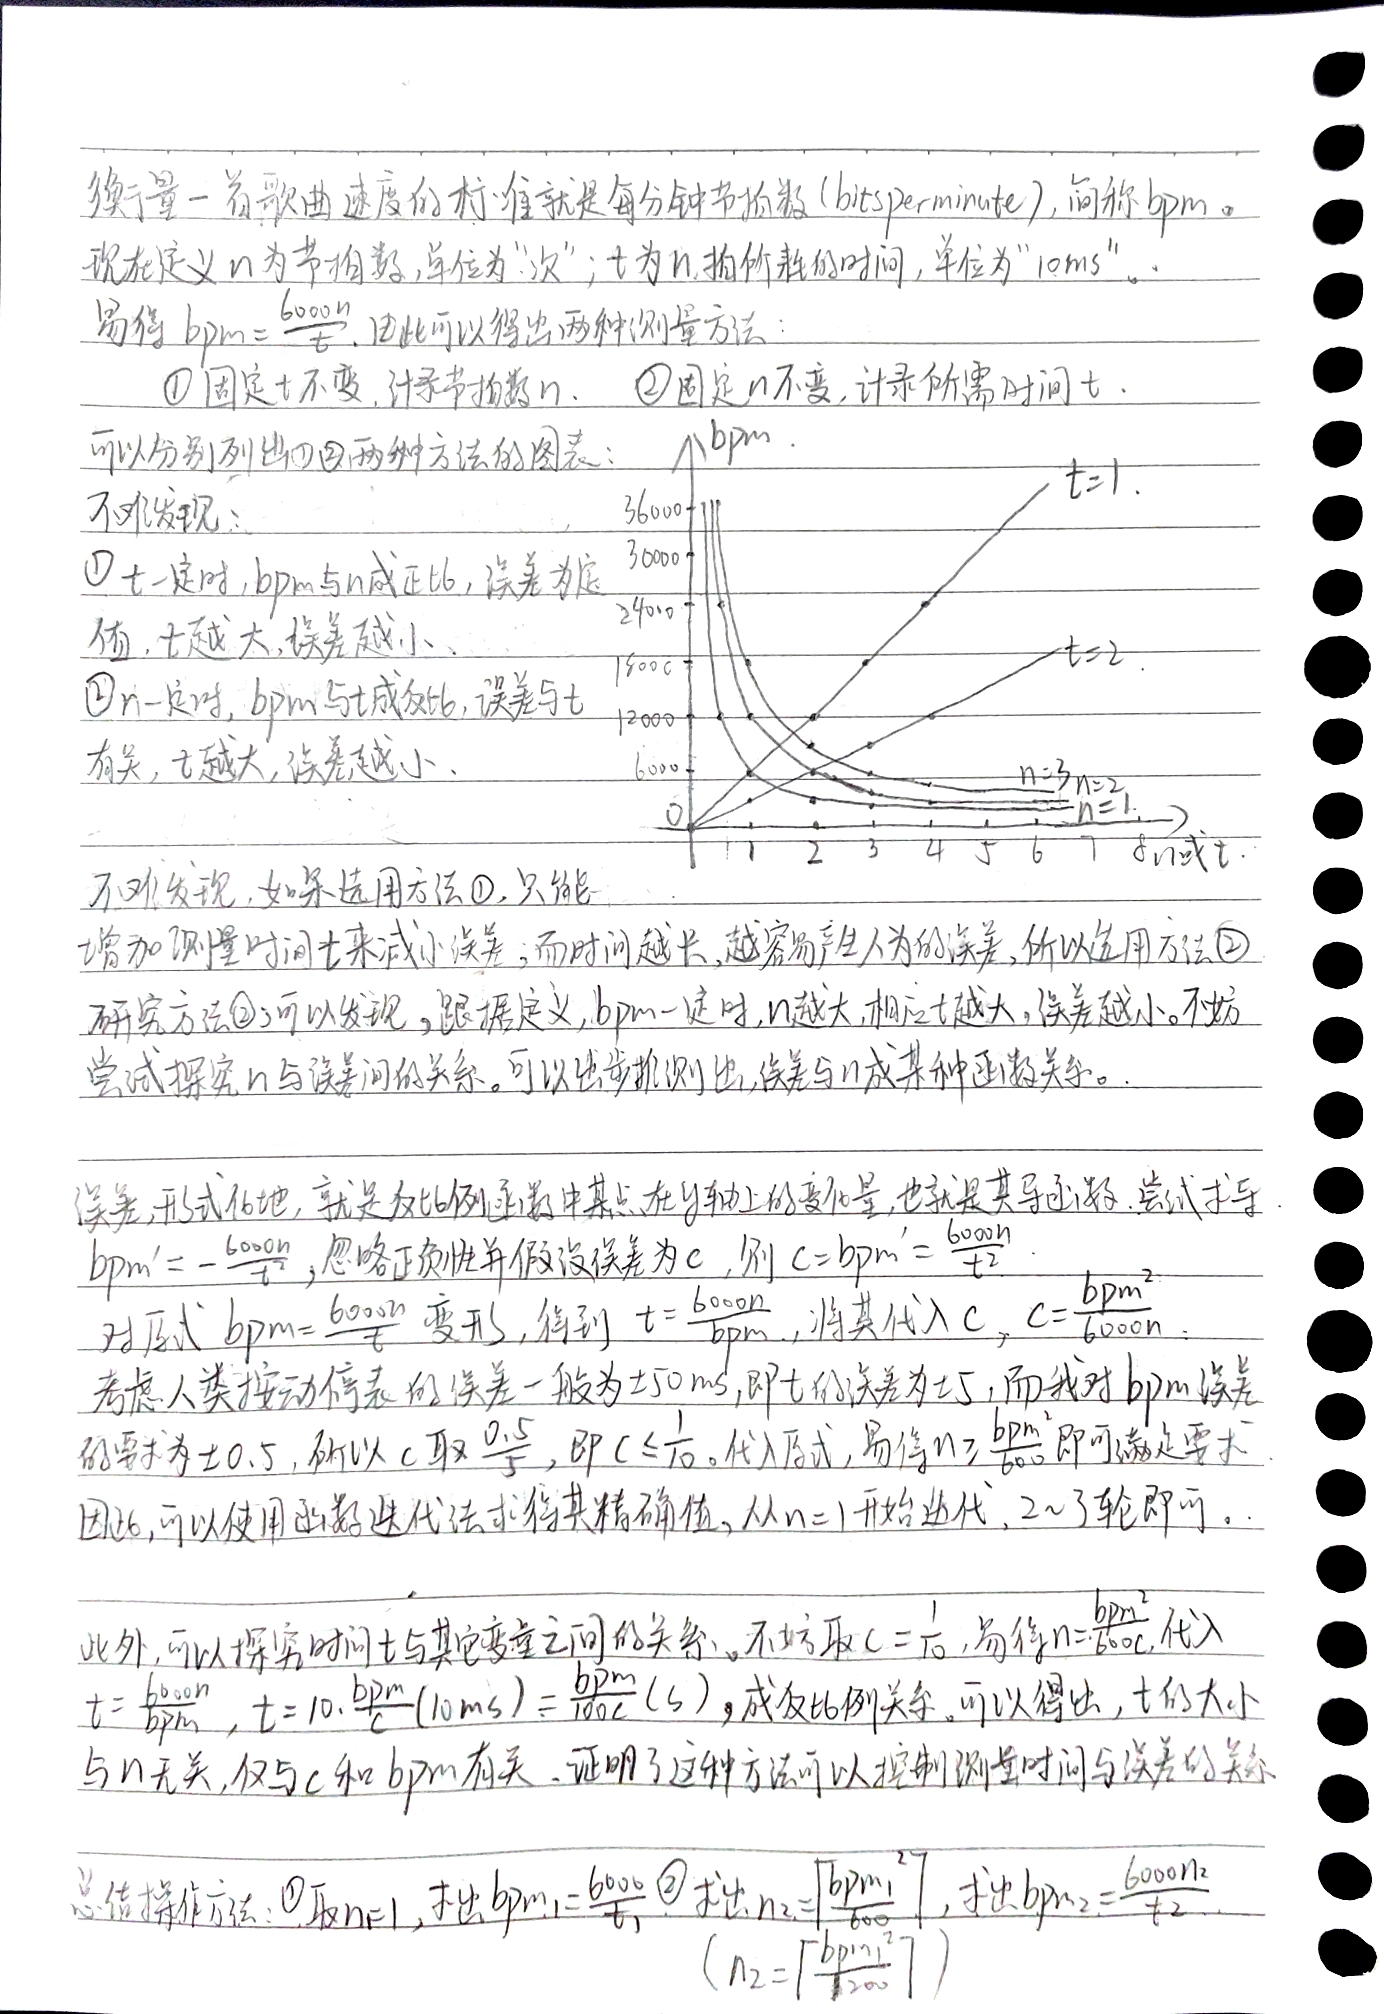 衡量一首歌曲速度的标准就是每分钟节拍数(bitsperminute),简称bpm。
现在定义n为节拍数,单位为"次";t为n拍所耗的时间,单位为"10ms"。
易得 bpm=6000n/t.因此可以得出两种测量方法:
①固定t不变,计录节拍数n. ②固定n不变,计录所需时间t.
可以分别列出①②两种方法的图表:
不难发现:
①t一定时,bpm与n成正比,误差为定
值,t越大,误差越小.
②n一定时,bpm与t成反比,误差与t
有关,t越大,误差越小.
bpm.
36000
30000
24000
18000
12000
6000
0
1 2 3 4 5 6 7 8 n或t.
t=1.
t=2.
n=3 n=2
n=1.
不难发现,如果选用方法①,只能
增加测量时间t来减小误差;而时间越长,越容易产生人为的误差,所以选用方法②
研究方法②,可以发现,跟据定义,bpm一定时,n越大,相应t越大,误差越小。不妨
尝试探究n与误差间的关系。可以步推测出,误差与n成某种函数关系。
误差,形式化地,就是反比例函数中某点在y轴上的变化量,也就是其导函数.尝试求导.
bpm'=-6000n/t²,忽略正负性并假设误差为c,则 c=bpm'=6000n/t².
对原式 bpm=6000n/t 变形,得到 t=6000n/bpm,将其代入c, c=bpm²/6000n.
考虑人类按动停表的误差一般为±50ms,即t的误差为±5,而我对bpm误差
的要求为±0.5,所以c取0.5/5,即c≤1/10。代入原式,易得n≥bpm²/600即可满足要求.
因此,可以使用函数迭代法求得其精确值,从n=1开始迭代,2~3轮即可。
此外,可以探究时间t与其它变量之间的关系。不妨取c=1/10,易得n=bpm²/600c,代入
t=6000n/bpm, t=10·bpm/c(10ms)=bpm/100c(s),成反比例关系。可以得出,t的大小
与n无关,仅与c和bpm有关.证明了这种方法可以控制测量时间与误差的关系
总结操作方法:①取n₁=1,求出bpm₁=6000/t₁ ②求出n₂=⌈bpm₁²/600⌉,求出bpm₂=6000n₂/t₂
(n₂=⌈bpm₁²/1200⌉)